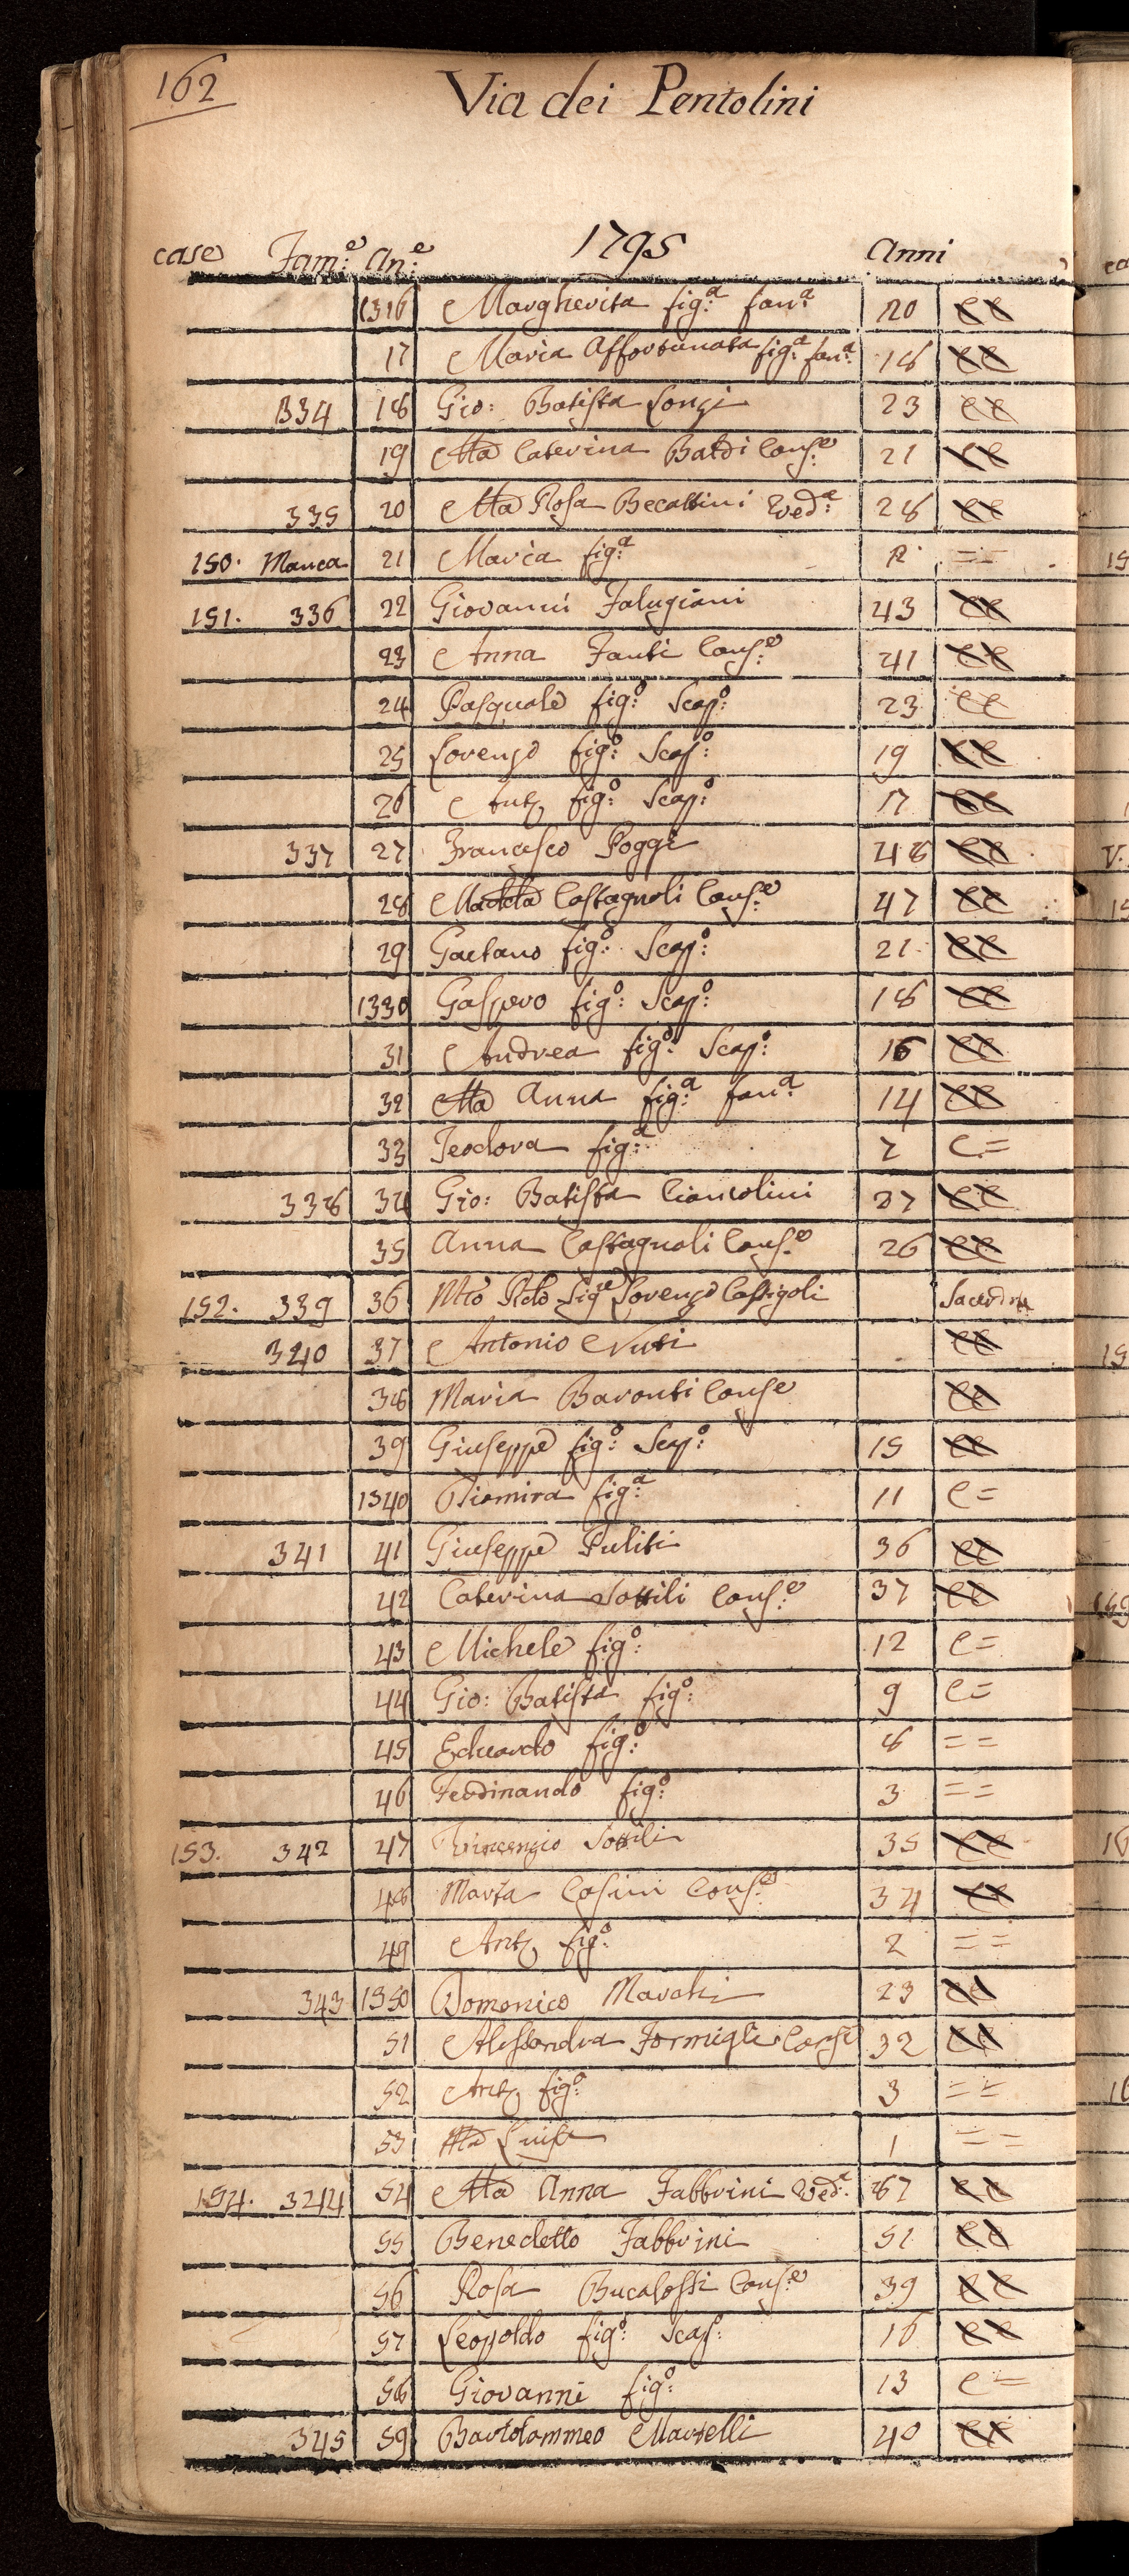 162
Via dei Pentolini
case Fam:e An:e 1795 Anni
1316 Margherita fig:a fan:a 20 CC
17 Maria Affortunata fig:a fan:a 18 CC
334 18 Gio: Batista Longi 23 CC
19 Ma Caterina Baldi Cons:e 21 CC
335 20 Ma Rosa Becattini Ved:a 28 CC
150. Manca 21 Maria fig:a R = =
151. 336 22 Giovanni Falugiani 43 CC
23 Anna Fanti Cons:e 41 CC
24 Pasquale fig:o Scap:o 23 CC
25 Lorenzo fig:o Scap:o 19 CC
26 Ant. fig:o Scap:o 17 CC
337 27 Francesco Poggi 48 CC
28 Madda Castagnoli Cons:e 47 CC
29 Gaetano fig:o Scap:o 21 CC
1330 Gaspero fig:o Scap:o 18 CC
31 Andrea fig:o Scap:o 16 CC
32 Ma Anna fig:a fan:a 14 CC
33 Teodora fig:a 7 C =
338 34 Gio: Batista Ciancolini 27 CC
35 Anna Castagnoli Cons:e 26 CC
152. 339 36 Mto Rdo Sigre Lorenzo Castigoli
340 37 Antonio Nuti CC
38 Maria Baronti Conse CC
39 Giuseppe fig:o Scap:o 15 CC
1340 Diomira fig:a 11 C =
341 41 Giuseppe Puliti 36 CC
42 Caterina Sottili Cons:e 37 CC
43 Michele fig:o 12 C =
44 Gio: Batista fig:o 9 C =
45 Eduardo fig:o 6 = =
46 Ferdinando fig:o 3 = =
153. 342 47 Vincenzio Sottili 35 CC
48 Marta Casini Cons:e 34 CC
49 Ant. fig:o 2 = =
343 1350 Domenico Marchi 23 CC
51 Alessandra Formigli Conse 32 CC
52 Ant. fig:o 3 = =
53 Ma Luisa 1 = =
154. 344 54 Ma Anna Fabbrini Ved:a 67 CC
55 Benedetto Fabbrini 51 CC
56 Rosa Bucalossi Cons:e 39 CC
57 Leopoldo fig:o Scap: 16 CC
58 Giovanni fig:o 13 C =
345 59 Bartolommeo Martelli 40 CC